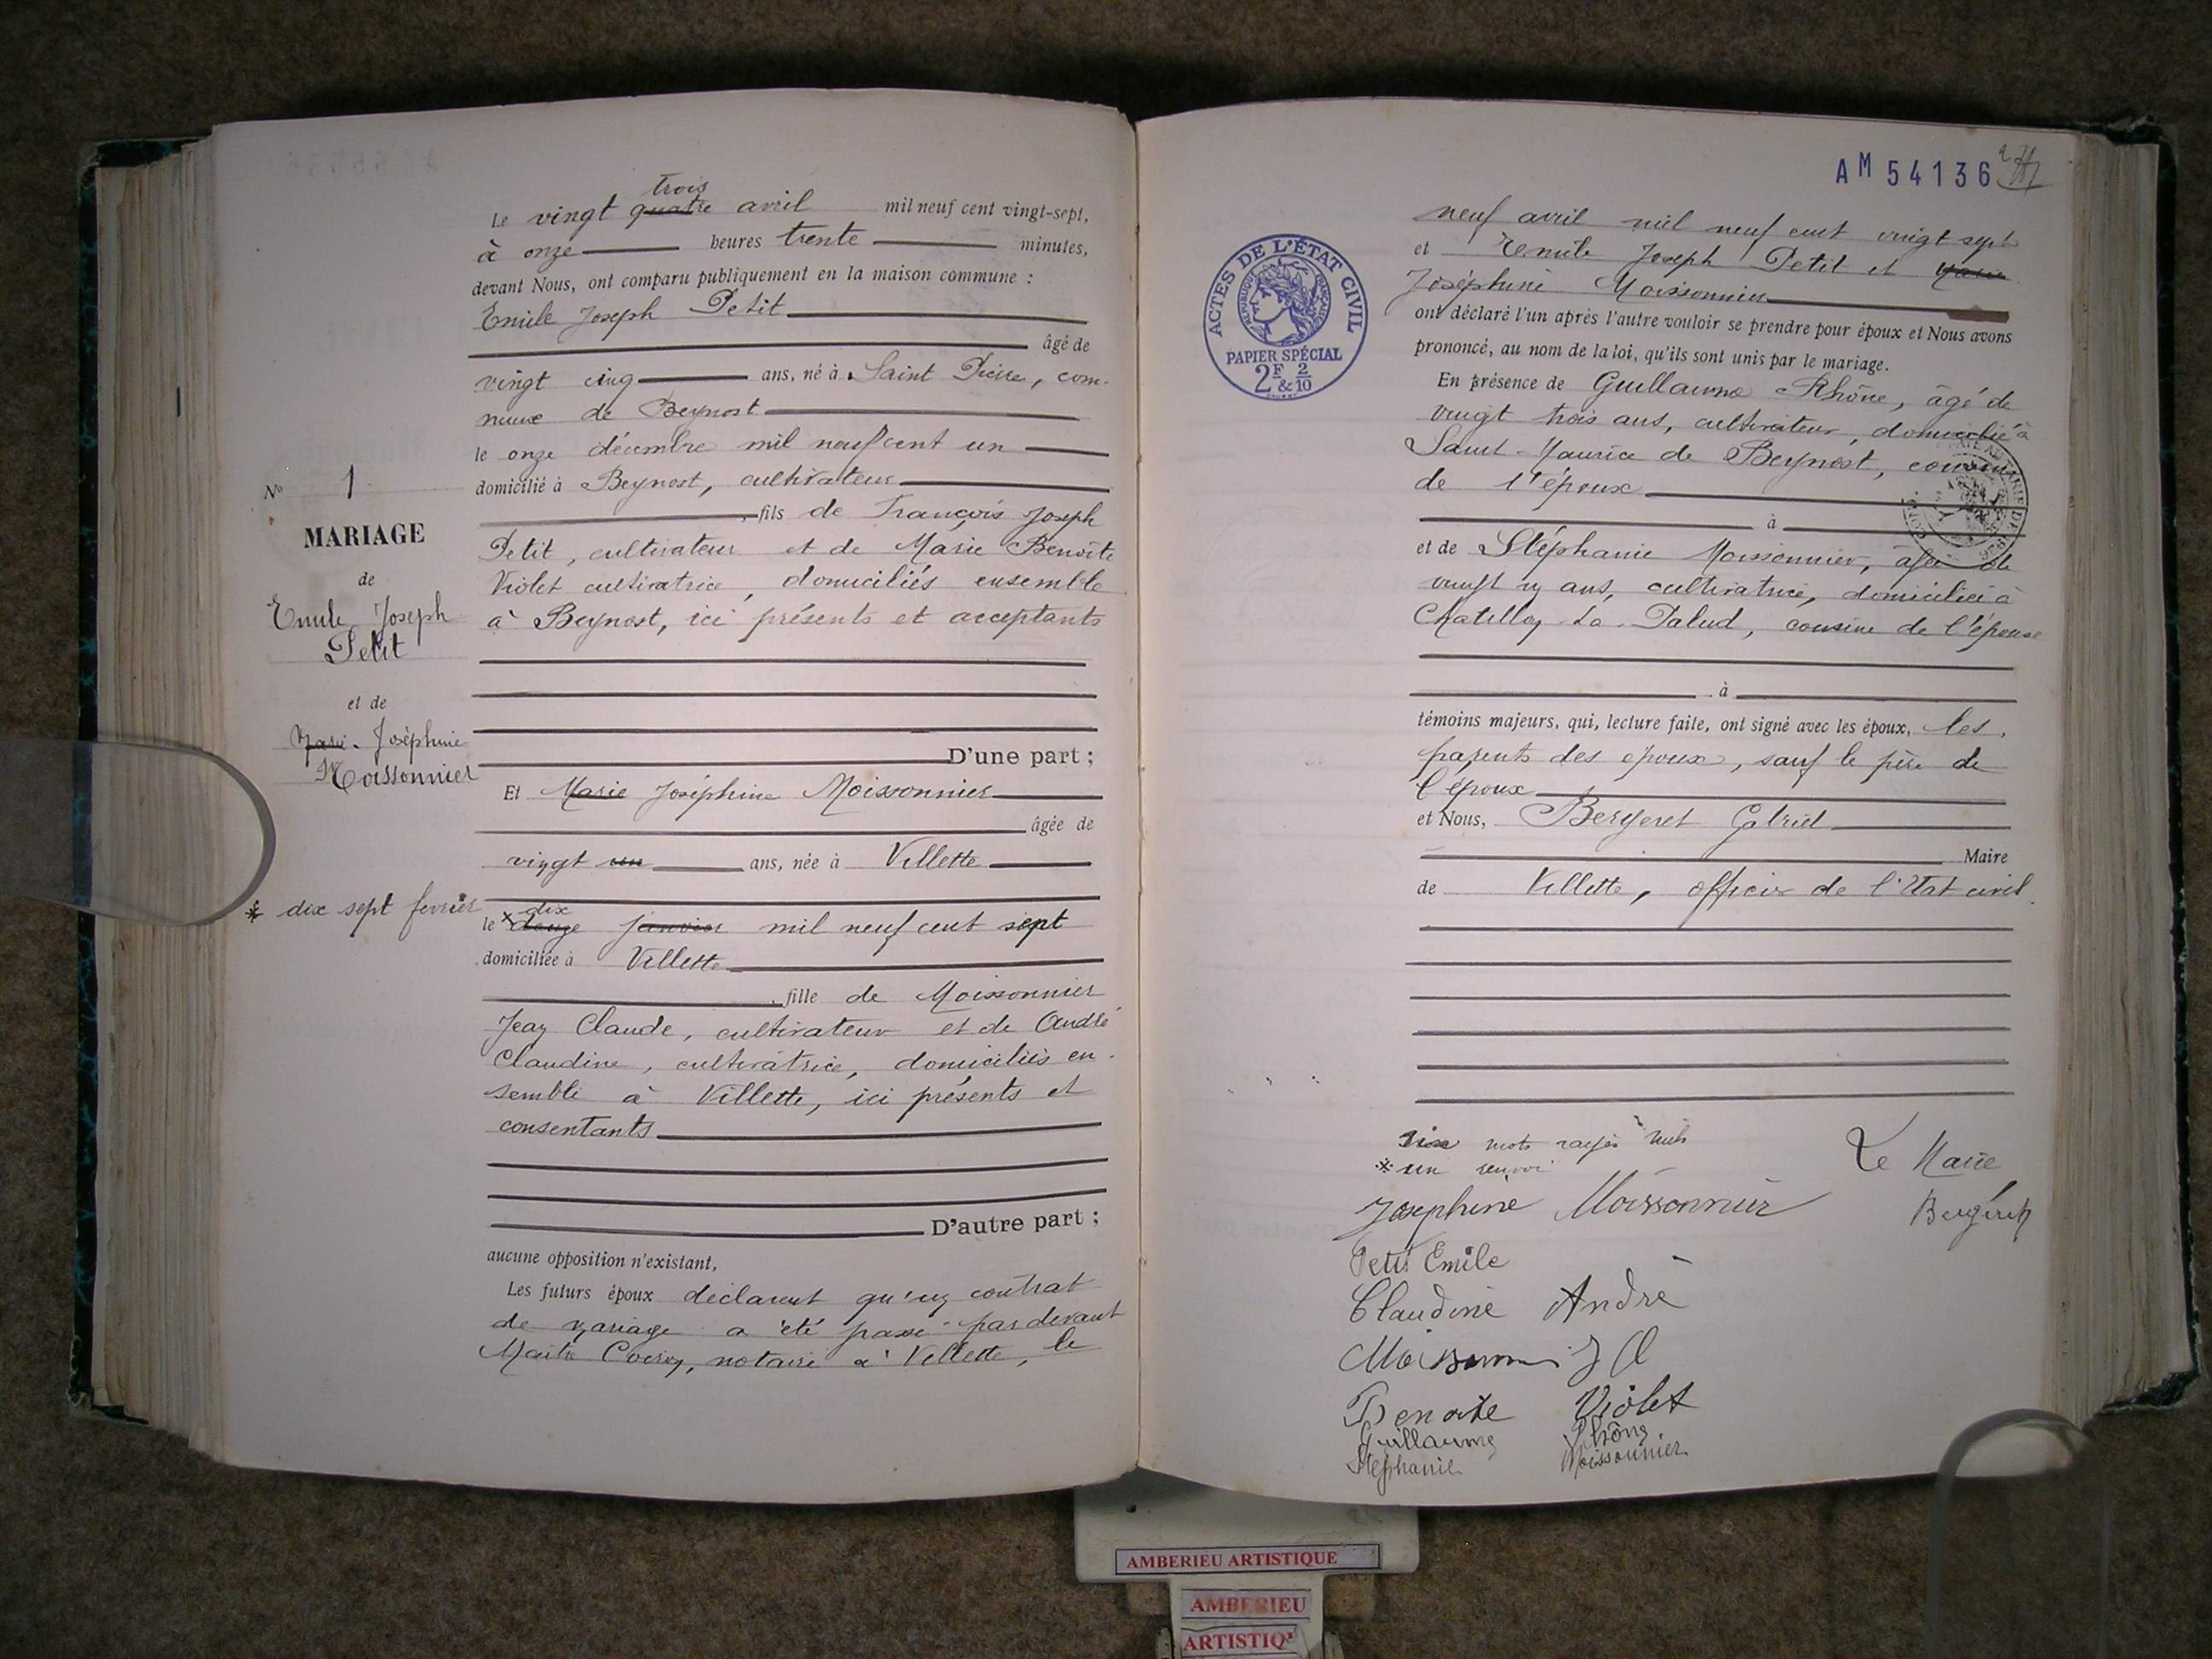 trois
Le vingt quatre avril mil neuf cent vingt-sept,
à onze heures trente minutes,
devant Nous, ont comparu publiquement en la maison commune :
Emile Joseph Petit
âgé de
vingt cinq ans, né à Saint Pierre, com-
mune de Beynost
le onze décembre mil neuf cent un
domicilié à Beynost, cultivateur
, fils de François Joseph
Petit, cultivateur et de Marie Benoîte
Violet cultivatrice, domiciliés ensemble
à Beynost, ici présents et acceptants
D'une part ;
Nº 1
MARIAGE
de
Emile Joseph
Petit
et de
Marie Joséphine
Moissonnier
* dix sept fevrier
Et Marie Joséphine Moissonnier
âgée de
vingt un ans, née à Villette
dix
le × douze janvier mil neuf cent sept
domiciliée à Villette
, fille de Moissonnier
Jean Claude, cultivateur et de André
Claudine, cultivatrice, domiciliés en-
semble à Villette, ici présents et
consentants
D'autre part ;
aucune opposition n'existant,
Les futurs époux déclarent qu'un contrat
de mariage a été passé pardevant
Maître notaire à Villette, le
AM 54136
ACTES DE L'ÉTAT CIVIL
RÉPUBLIQUE FRANÇAISE
PAPIER SPÉCIAL
2F & 2/10
neuf avril mil neuf cent vingt sept
et Emile Joseph Petit et Marie
Joséphine Moissonnier
ont déclaré l'un après l'autre vouloir se prendre pour époux et Nous avons
prononcé, au nom de la loi, qu'ils sont unis par le mariage.
En présence de Guillaume Rhône, âgé de
vingt trois ans, cultivateur, domicilié à
Saint-Maurice de Beynost, cousin
de l'époux
à
et de Stéphanie Moissonnier, âgée de
vingt un ans, cultivatrice, domiciliée à
Chatillon-La-Palud, cousine de l'épouse
à
témoins majeurs, qui, lecture faite, ont signé avec les époux, les
parents des époux, sauf le père de
l'époux
et Nous, Bergeret Gabriel
Maire
de Villette, officier de l'Etat civil.
mots rayés nuls
* un renvoi
Le Maire
Josephine Moissonnier
Bergeret
Petit Emile
Claudine André
Moissonnier J C
Benoite Violet
Guillaume Rhône
Stéphanie Moissonnier
AMBERIEU ARTISTIQUE
AMBERIEU
ARTISTIQ